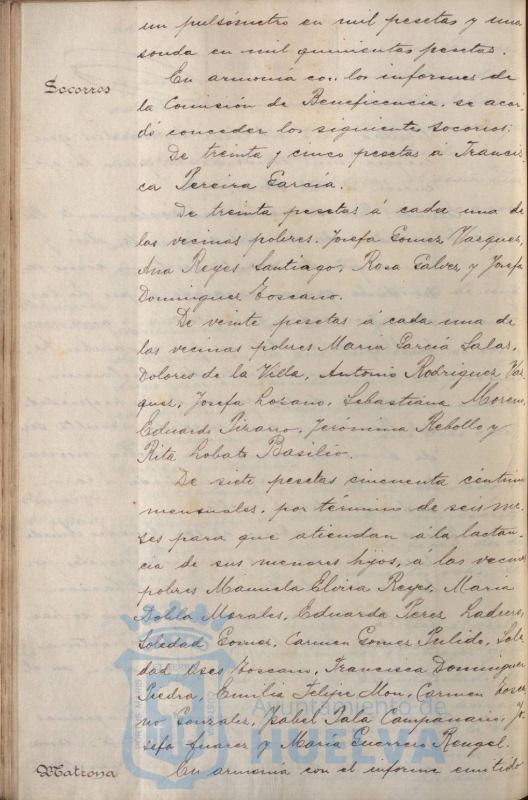 un pulsómetro en mil pesetas y una
sonda en mil quinientas pesetas.
Socorros
En armonía con los informes de
la Comisión de Beneficencia se acor-
dó conceder los siguientes socorros:
De treinta y cinco pesetas á Francis-
ca Pereira García.
De treinta pesetas á cada una de
las vecinas pobres, Josefa Gomez Vazquez,
Ana Reyes Santiago, Rosa Galvez y Josefa
Dominguez Toscano.
De veinte pesetas á cada una de
las vecinas pobres Maria Garcia Salas,
Dolores de la Villa, Antonio Rodriguez Vaz
quez, Josefa Lozano, Sebastiana Moreno,
Eduardo Pizarro, Jeronima Rebollo y
Rita Lobato Basilio.
De siete pesetas cincuenta céntimos
mensuales, por término de seis me-
ses para que atiendan á la lactan-
cia de sus menores hijos, á las vecinas
pobres Manuela Elvira Reyes, Maria
Morales, Eduarda Perez Ladrero,
Soledad Gomez, Carmen Gomez Pulido, Sole
dad Toscano, Francisca Dominguez
Piedra, Emilia Felipe Mon, Carmen Tosca
no Gonzalez, Isabel Pala Campanario, Jo
sefa Juarez y Maria Guerrero Rengel.
Matrona
En armonía con el informe emitido
Ayuntamiento de
HUELVA